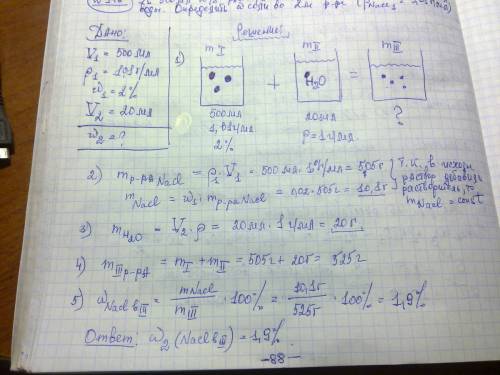 воды. Определить w соли во 2м р-ре
Дано:
Решение:
V₁ = 500мл
ρ₁ = 1,01г/мл
w₁ = 2%
V₂ = 20мл
w₂ = ?
1)
m I
m II
m III
+ H₂O =
500мл
1,01г/мл
2%
20мл
ρ=1г/мл
?
2) m р-ра NaCl = ρ₁·V₁ = 500мл · 1,01г/мл = 505г
m NaCl = w₁·m р-ра NaCl = 0,02·505г = 10,1г
Т.к. в исходн
раствор добавили
растворитель, то
m NaCl = const
3) m H₂O = V₂·ρ = 20мл·1г/мл = 20г.
4) m III р-ра = m I + m II = 505г + 20г = 525г
5) w NaCl в III = mNaCl / m III · 100% = 10,1г / 525г · 100% = 1,9%
Ответ: w₂ (NaCl в III) = 1,9%.
-88-